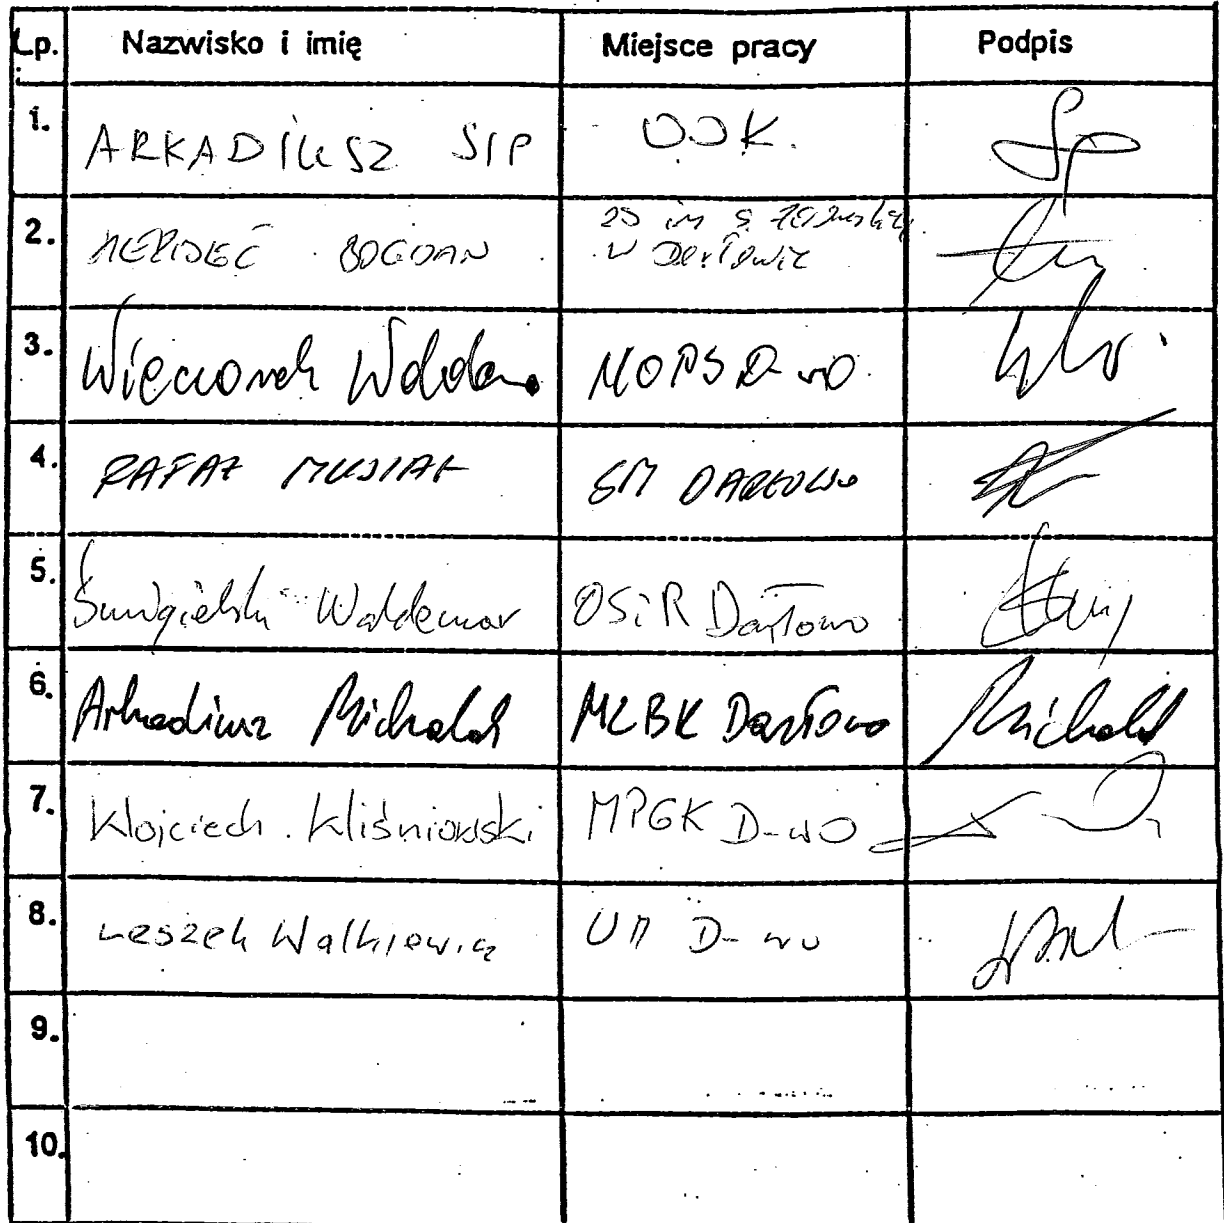 Lp. Nazwisko i imię Miejsce pracy Podpis
1. ARKADIUSZ SIP O.O.K.
2. BOGDAN im S. w Darłowie
3. Wieczorek MOPS D-wo
4. RAFAŁ MUSIAŁ SM DARŁOWO
5. Śmigielski Waldemar OSiR Darłowo
6. Arkadiusz Michalak MZBK Darłowo Michalak
7. Wojciech Kliśniowski MPGK D-wo
8. Leszek Walkiewicz UM D-wo
9.
10.